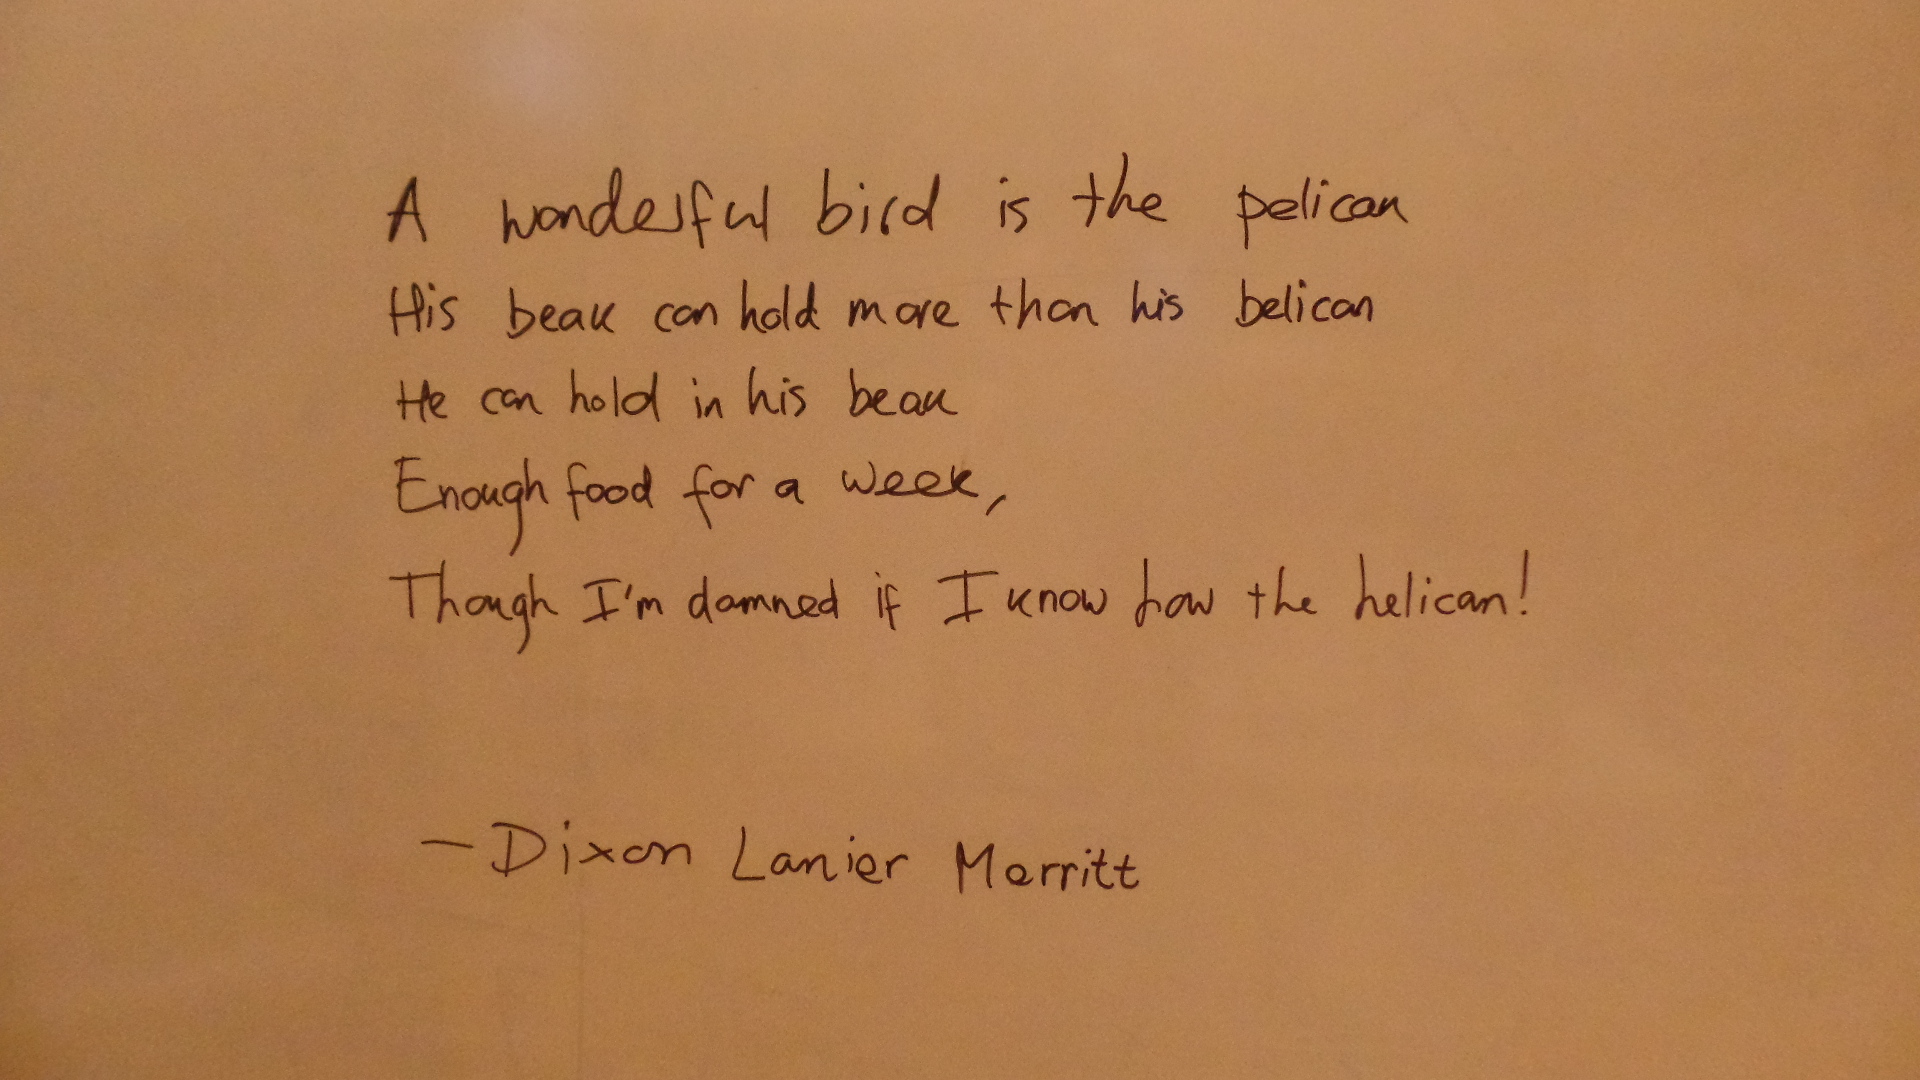 A wonderful bird is the pelican
His beak can hold more than his belican
He can hold in his beak
Enough food for a week,
Though I'm damned if I know how the helican!
— Dixon Lanier Merritt